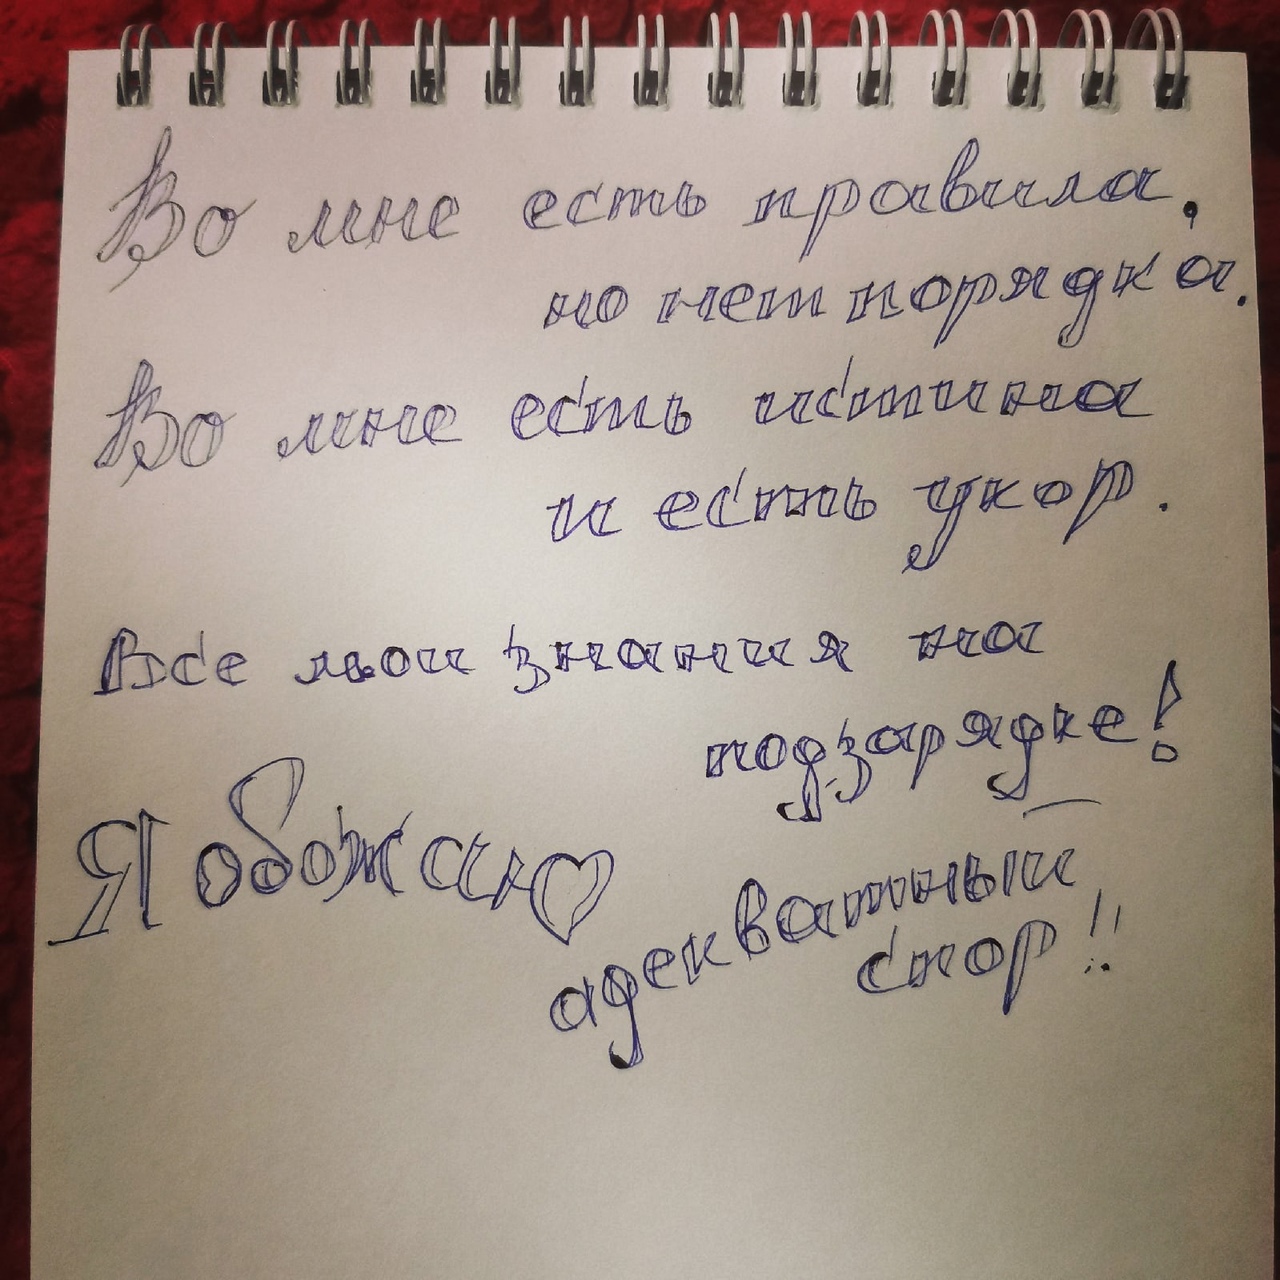 Во мне есть правила,
но нет порядка.
Во мне есть истина
и есть укор.
Все мои знания на
подзарядке!
Я обожаю
адекватный
спор!!